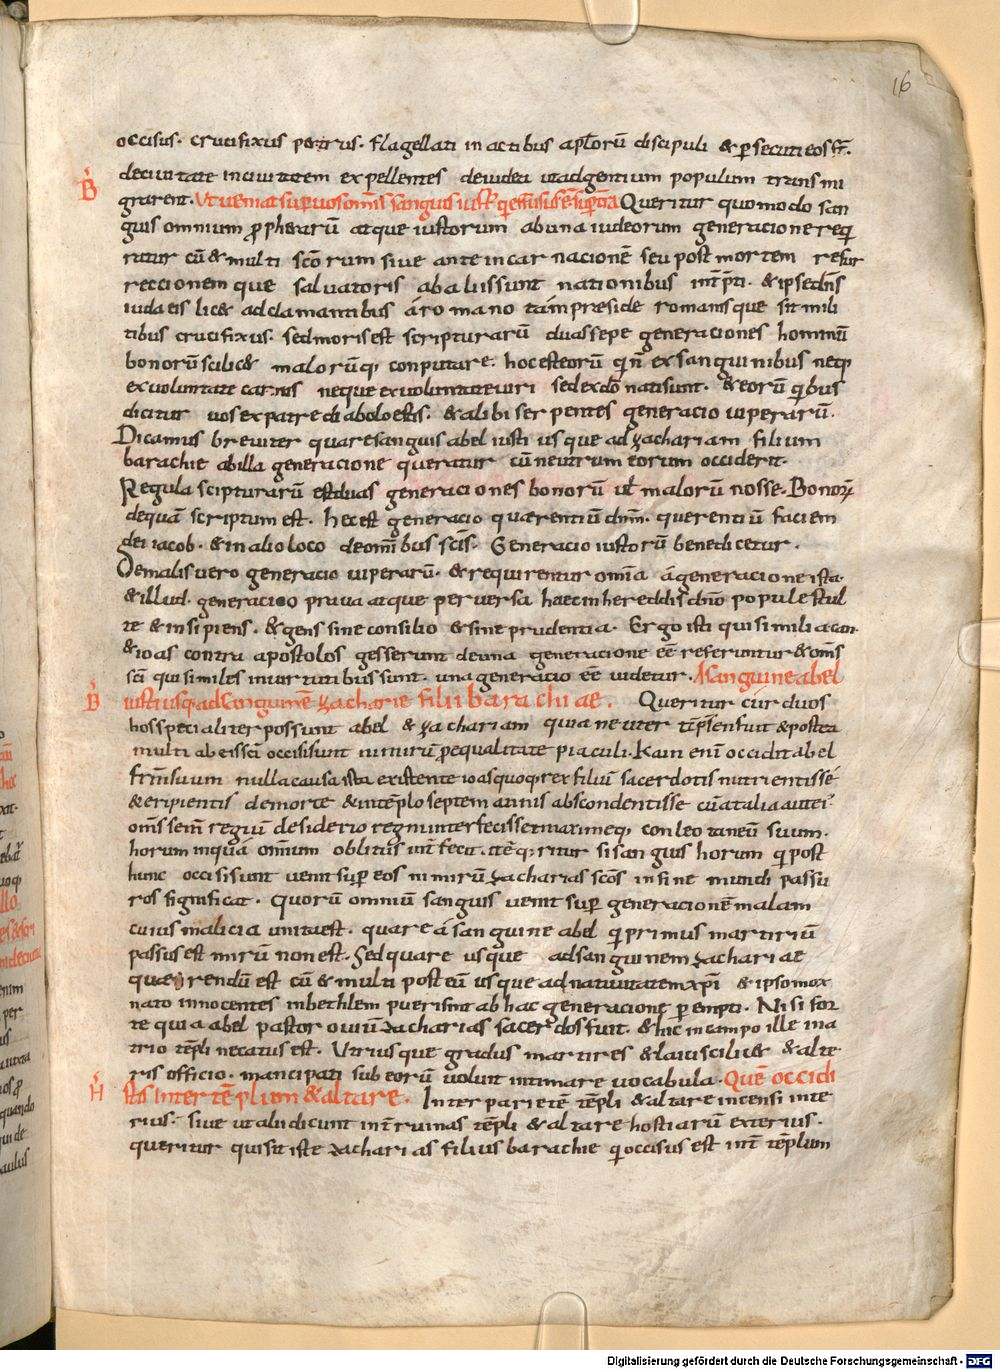 16
occisus. crucifixus petrus. flagellati in actibus aplorū discipuli & persecuti eos st̄.
B
deciuitate inciuitatem expellentes deiudea utadgentium populum transmi
grarent. Utueniat sup uos omīs sanguis iust' qi effusus ē sup terrā Queritur quomodo san
guis omnium ꝓphetarū atque iustorum abuna iudeorum generacione req̇
ratur cū & multi scōrum siue ante incarnacionē seu post mortem resur
reccionemque saluatoris abaliis sunt nationibus int̄p̄ti. & ipse dn̄s
iudaeis lic& adclamantibus áromano tám preside romanisque sit mili
tibus crucifixus. sed moris est scripturarū duas sepe generaciones hominū
bonorū scilic& malorūq; conputare. hoc est eorū qi n̄ ex sanguinibus neq;
ex uoluntate carnis neque ex uoluntate uiri sed ex dō nati sunt. & eorū q̇bus
dicitur uos ex patre diabolo estis. & alibi serpentes generacio uiperarū.
Dicamus breuiter quare sanguis abel iusti usque ad zachariam filium
barachie abilla generacione queratur cū neutrum eorum occiderit.
Regula scipturarū est duas generaciones bonorū ut malorū nosse. Bonoꝝ
dequā scriptum est. hec est generacio quaerentiū dnm̄. querentiū faciem
dei iacob. & in alio loco deomībus scīs. Generacio iustorū benedicetur.
Demalis uero generacio uiperarū. & requirentur omīa ágeneracione ista.
& illud. generacio praua atque peruersa haec in hereddis dnō popule stul
te & insipiens. & gens sine consilio & sine prudentia. Ergo isti qui similia con
& ioas contra apostolos gesserunt deuna generacione eē referuntur & omīs
scī qui similes in uirtutibus sunt. una generacio eē uidetur. A sanguine abel
B
iusti usq; ad sanguinē zacharie filii barachiae. Queritur cúr duos
hos specialiter possunt abel & zachariam quia neuter tp̄r sen fuit & postea
multi ab eis scī occisi sunt nimirū pequalitate piaculi. Kain enī occidit abel
fr̄m suum nulla causa ista existente ioas quoq; rex filiū sacerdotis nutrientis sé
& eripientis demorte & intēplo septem annis abscondentis se cū atalia autei'
omīs semē regiū desiderio regni interfecisset maximeq; conleotaneū suum.
horum inquā omnium oblitus int̄fecit. itē q;ritur si sanguis horum q̇ post
hunc occisi sunt uenit sup eos nimirū zacharias scōs in fine mundi passu
ros significat. Quorū omniū sanguis uenit sup generacionē malam
cuius malicia unita est. quare á sanguine abel q̇ primus martiriū
passus est mirū non est. Sed quare usque adsanguinem zachariae
quaerendū est cū & multi post eū usque ad natiuitatem xp̄i & ipso mox
nato innocentes inbethlem pueri sint ab hac generacione perempti. Nisi for
te quia abel pastor ouiū zacharias sacerdos fuit. & hic incampo ille ina
trio tēpli necatus est. Utriusque gradus martires & laiui scilic& & alta
ris officio. mancipati sub eorū uoluit intimare uocabula. Quē occidi
H
stis inter tēplum & altare. Inter parietē tēpli & altare incensi inte
rius. siue ut alii dicunt int̄ ruinas tēpli & altare hostiarū exterius.
queritur quis sit iste zacharias filius barachie q̇ occisus est int̄ tēplum
Digitalisierung gefördert durch die Deutsche Forschungsgemeinschaft - DFG